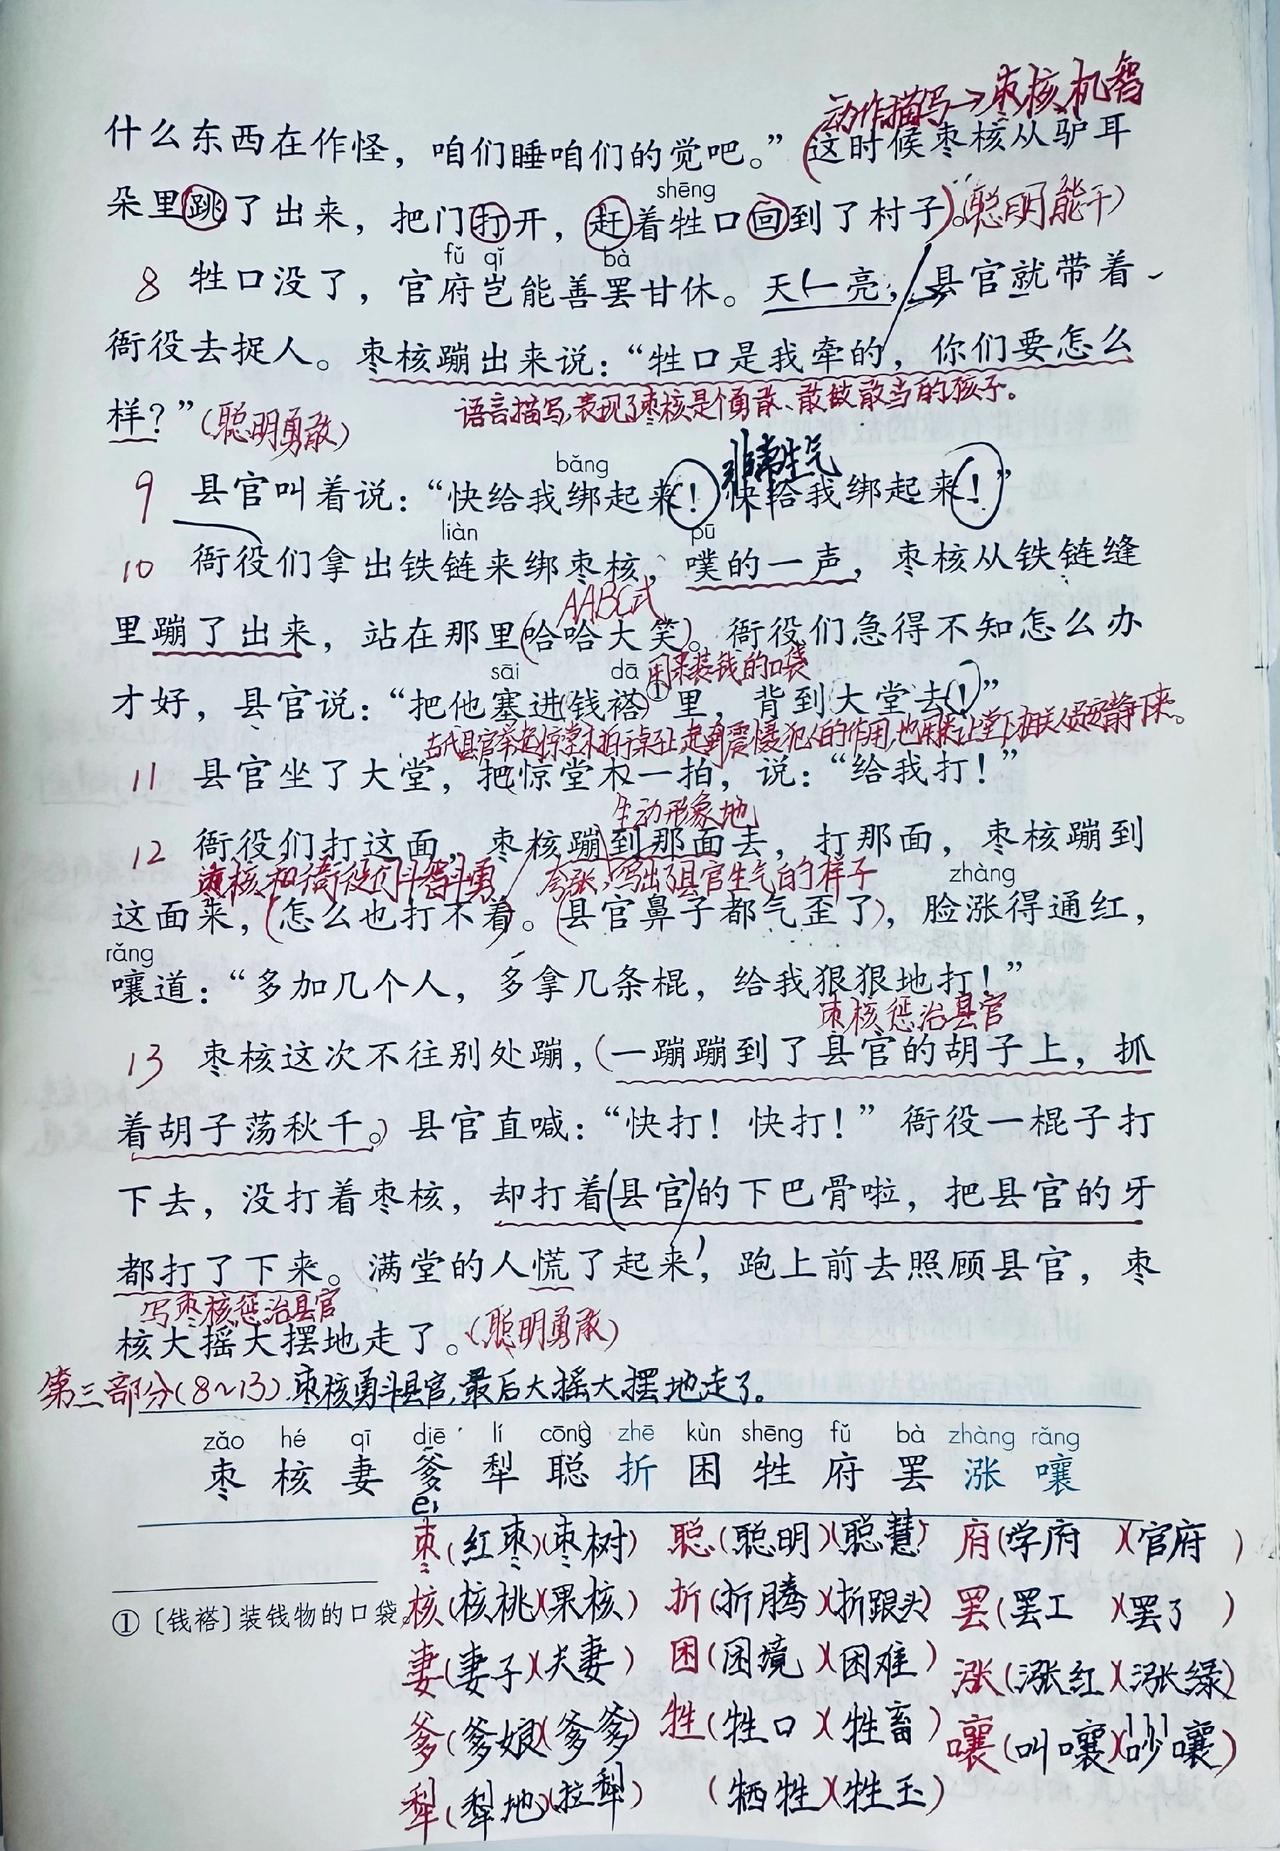 动作描写→枣核机智
什么东西在作怪，咱们睡咱们的觉吧。”（这时候枣核从驴耳
shēng
朵里跳了出来，把门打开，赶着牲口回到了村子）。（聪明能干）
fǔ qǐ bà
8 牲口没了，官府岂能善罢甘休。天一亮，县官就带着
衙役去捉人。枣核蹦出来说：“牲口是我牵的，你们要怎么
样？”（聪明勇敢） 语言描写，表现了枣核是个勇敢、敢做敢当的孩子。
bǎng 非常生气
9 县官叫着说：“快给我绑起来！快给我绑起来！”
liàn pū
10 衙役们拿出铁链来绑枣核，噗的一声，枣核从铁链缝
AABC式
里蹦了出来，站在那里（哈哈大笑）。衙役们急得不知怎么办
sāi dā 用来装钱的口袋
才好，县官说：“把他塞进钱褡①里，背到大堂去！”
古代县官举起惊堂木拍于桌上，起到震慑犯人的作用，也用来让堂下相关人员安静下来。
11 县官坐了大堂，把惊堂木一拍，说：“给我打！”
生动形象地
12 衙役们打这面，枣核蹦到那面去，打那面，枣核蹦到
枣核和衙役们斗智斗勇 夸张，写出了县官生气的样子 zhàng
这面来，（怎么也打不着。（县官鼻子都气歪了），脸涨得通红，
rǎng
嚷道：“多加几个人，多拿几条棍，给我狠狠地打！”
枣核惩治县官
13 枣核这次不往别处蹦，（一蹦蹦到了县官的胡子上，抓
着胡子荡秋千。）县官直喊：“快打！快打！”衙役一棍子打
下去，没打着枣核，却打着（县官）的下巴骨啦，把县官的牙
都打了下来。满堂的人慌了起来，跑上前去照顾县官，枣
写枣核惩治县官
核大摇大摆地走了。（聪明勇敢）
第三部分（8~13）枣核勇斗县官，最后大摇大摆地走了。
zǎo hé qī diē lí cōng zhē kùn shēng fǔ bà zhàng rǎng
枣 核 妻 爹 犁 聪 折 困 牲 府 罢 涨 嚷
枣（红枣）（枣树） 聪（聪明）（聪慧） 府（学府）（官府）
①〔钱褡〕装钱物的口袋。
核（核桃）（果核） 折（折腾）（折跟头） 罢（罢工）（罢了）
妻（妻子）（夫妻） 困（困境）（困难） 涨（涨红）（涨绿）
爹（爹娘）（爹爹） 牲（牲口）（牲畜） 嚷（叫嚷）（吵嚷）
犁（犁地）（拉犁） （牺牲）（牲玉）